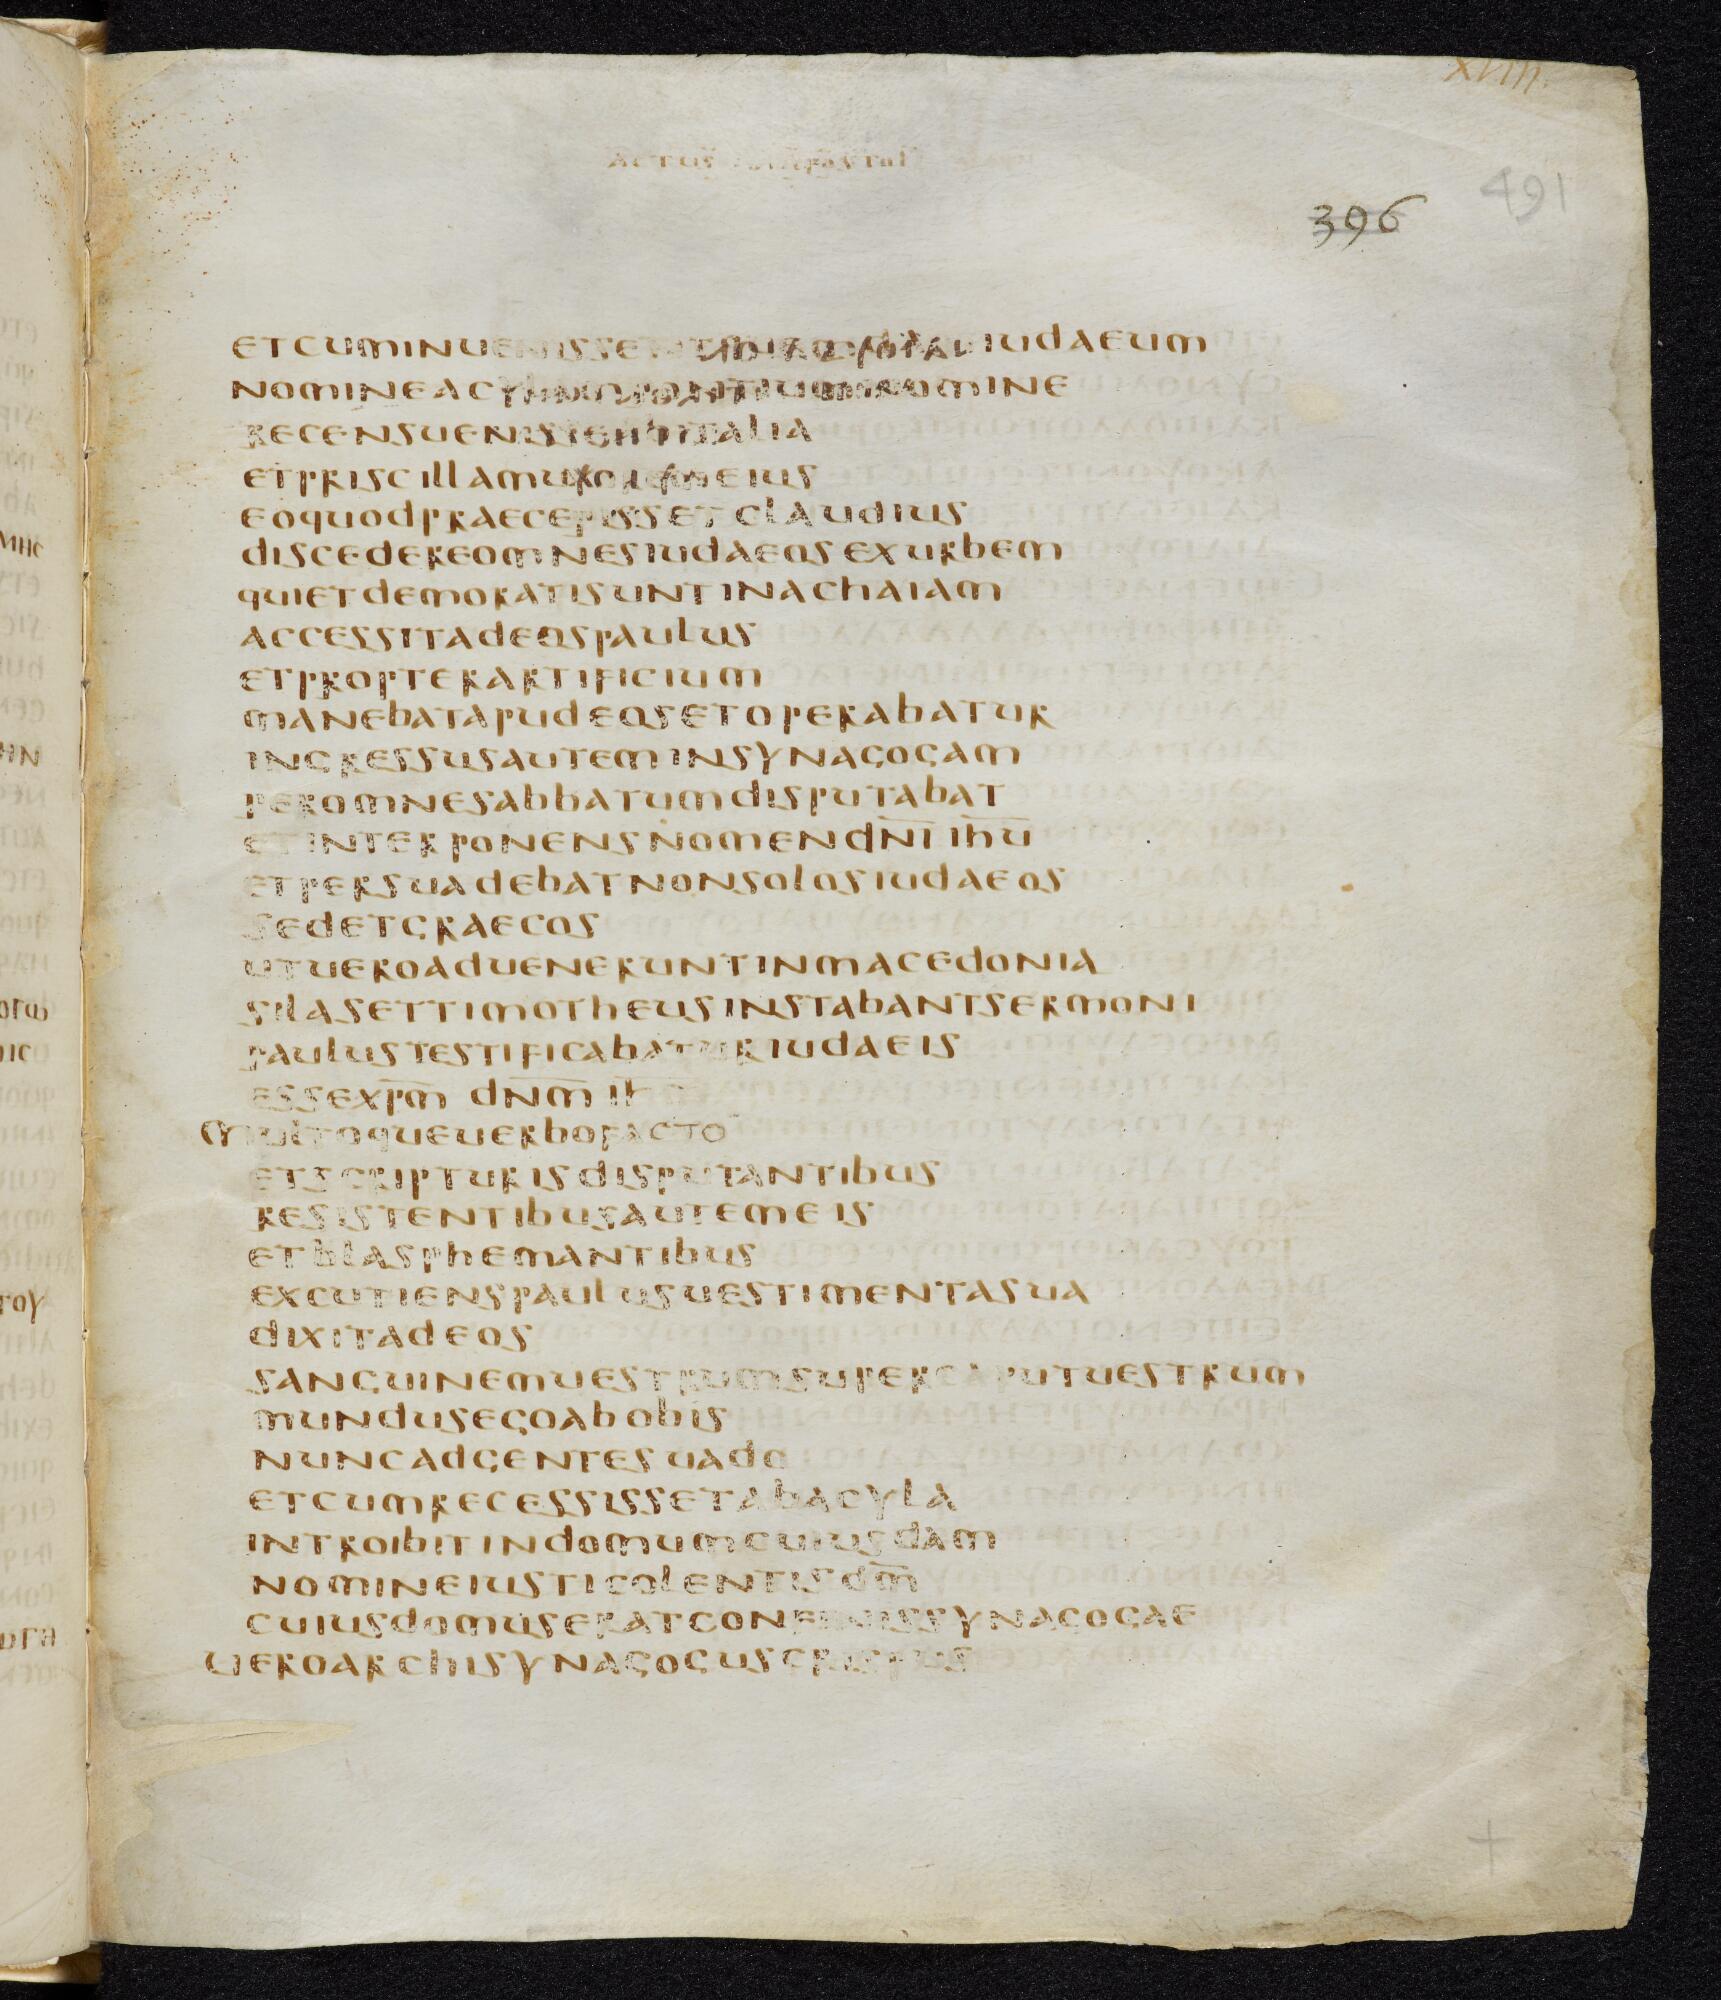 XVIII.
ACTUS APOSTOL
491
396
ETCUMINUENISSE IUDAEUM
NOMINEACYLA PONTIUM NOMINE
RECENSUENISSEABITALIA
ETPRISCILLAMUXOREMEIUS
EOQUODPRAECEPISSETCLAUDIUS
DISCEDEREOMNESIUDAEOSEXURBEM
QUIETDEMORATISUNTINACHAIAM
ACCESSITADEOSPAULUS
ETPROPTERARTIFICIUM
MANEBATAPUDEOSETOPERABATUR
INGRESSUSAUTEMINSYNAGOGAM
PEROMNESABBATUMDISPUTABAT
ETINTERPONENSNOMENDN̅I̅ IH̅U̅
ETPERSUADEBATNONSOLOSIUDAEOS
SEDETGRAECOS
UTUEROADUENERUNTINMACEDONIA
SILASETTIMOTHEUSINSTABANTSERMONI
PAULUSTESTIFICABATURIUDAEIS
ESSEXP̅M̅ DN̅M̅ IH̅
MULTOQUEUERBOFACTO
ETSCRIPTURISDISPUTANTIBUS
RESISTENTIBUSAUTEMEIS
ETBLASPHEMANTIBUS
EXCUTIENSPAULUSUESTIMENTASUA
DIXITADEOS
SANGUINEMUESTRUMSUPERCAPUTUESTRUM
MUNDUSEGOABOBIS
NUNCADGENTESUADO
ETCUMRECESSISSETABACYLA
INTROIBITINDOMUMCUIUSDAM
NOMINEIUSTICOLENTISDM̅
CUIUSDOMUSERATCONFINISSYNAGOGAE
UEROARCHISYNAGOGUSCRISPUS